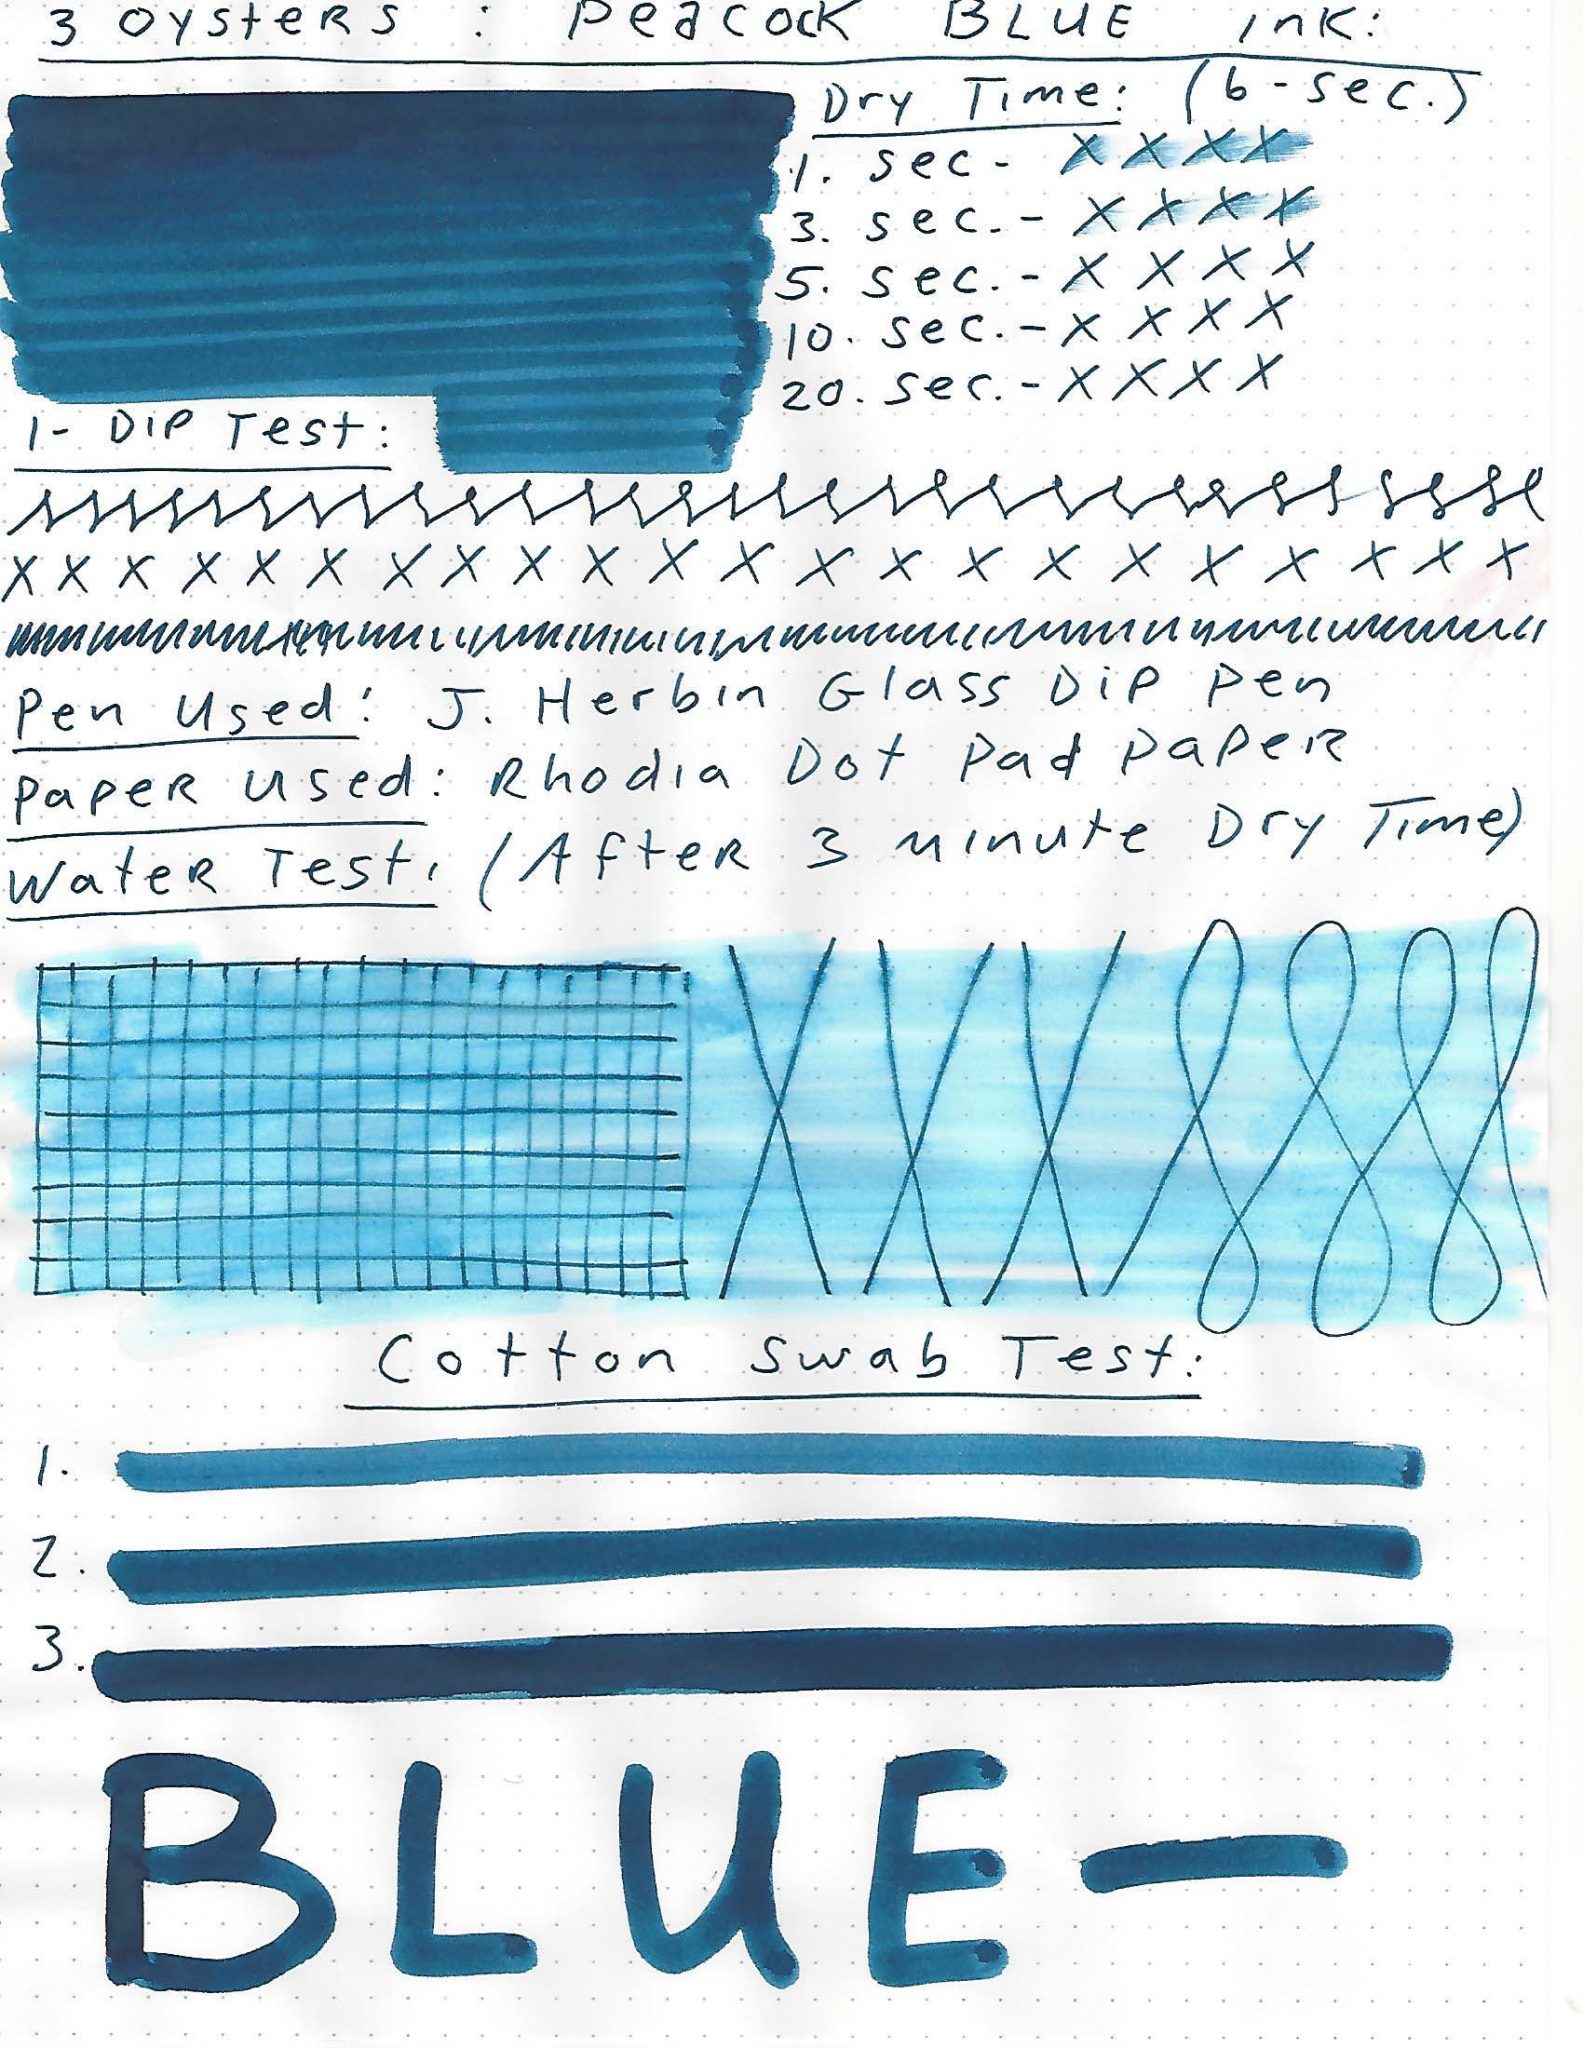 3 Oysters : Peacock BLUE Ink:
Dry Time: (6-sec.)
1. sec- X X X X
3. sec.- X X X X
5. sec.- X X X X
10. sec.- X X X X
20. sec.- X X X X
1- Dip Test:
X X X X X X X X X X X X X X X X X X X X X X
Pen Used: J. Herbin Glass Dip Pen
Paper Used: Rhodia Dot Pad Paper
Water Test: (After 3 minute Dry Time)
Cotton Swab Test:
1.
2.
3.
BLUE—